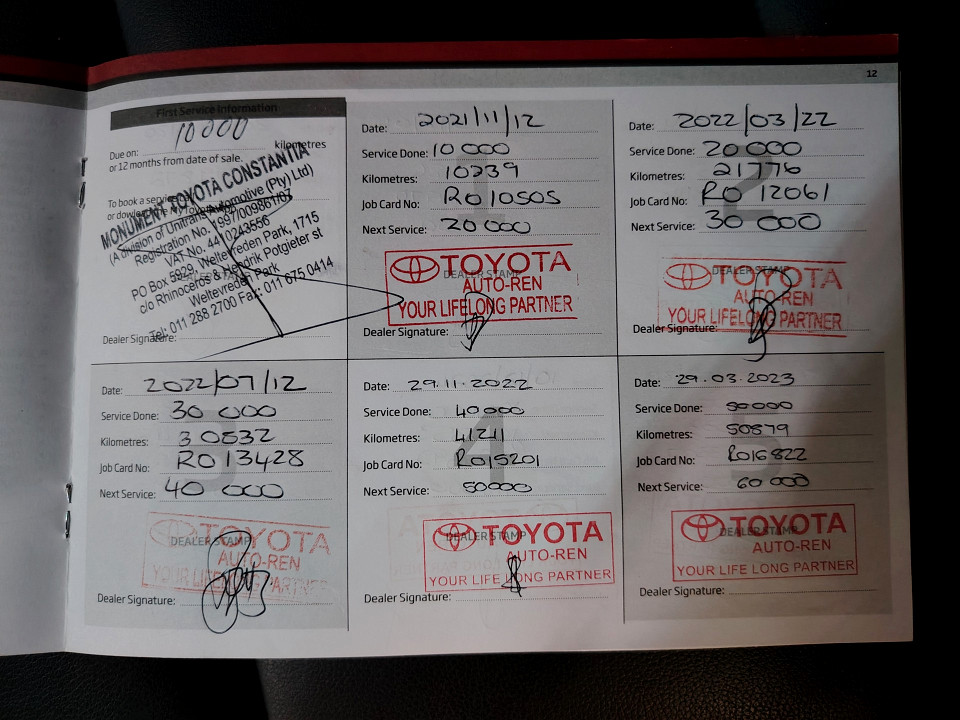 12
First Service Information
Due on: 10 000
kilometres
or 12 months from date of sale.
To book a service
MONUMENT TOYOTA CONSTANTIA
(A division of Unitrans Automotive (Pty) Ltd)
Registration No. 1997/009861/07
VAT No. 4410243556
PO Box 5929, Weltevreden Park, 1715
c/o Rhinoceros & Hendrik Potgieter st
Weltevreden Park
Tel: 011 288 2700 Fax: 011 675 0414
Dealer Signature:
Date: 2021/11/12
Service Done: 10 000
Kilometres: 10239
Job Card No: RO10505
Next Service: 20 000
DEALER STAMP
TOYOTA
AUTO-REN
YOUR LIFELONG PARTNER
Dealer Signature:
Date: 2022/03/22
Service Done: 20 000
Kilometres: 21776
Job Card No: RO 12061
Next Service: 30 000
DEALER STAMP
TOYOTA
AUTO-REN
YOUR LIFELONG PARTNER
Dealer Signature:
Date: 2022/07/12
Service Done: 30 000
Kilometres: 30532
Job Card No: RO13428
Next Service: 40 000
DEALER STAMP
TOYOTA
AUTO-REN
YOUR LIFELONG PARTNER
Dealer Signature:
Date: 29.11.2022
Service Done: 40000
Kilometres: 41211
Job Card No: RO15201
Next Service: 50000
DEALER STAMP
TOYOTA
AUTO-REN
YOUR LIFE LONG PARTNER
Dealer Signature:
Date: 29.03.2023
Service Done: 50000
Kilometres: 50579
Job Card No: RO16822
Next Service: 60 000
DEALER STAMP
TOYOTA
AUTO-REN
YOUR LIFE LONG PARTNER
Dealer Signature: